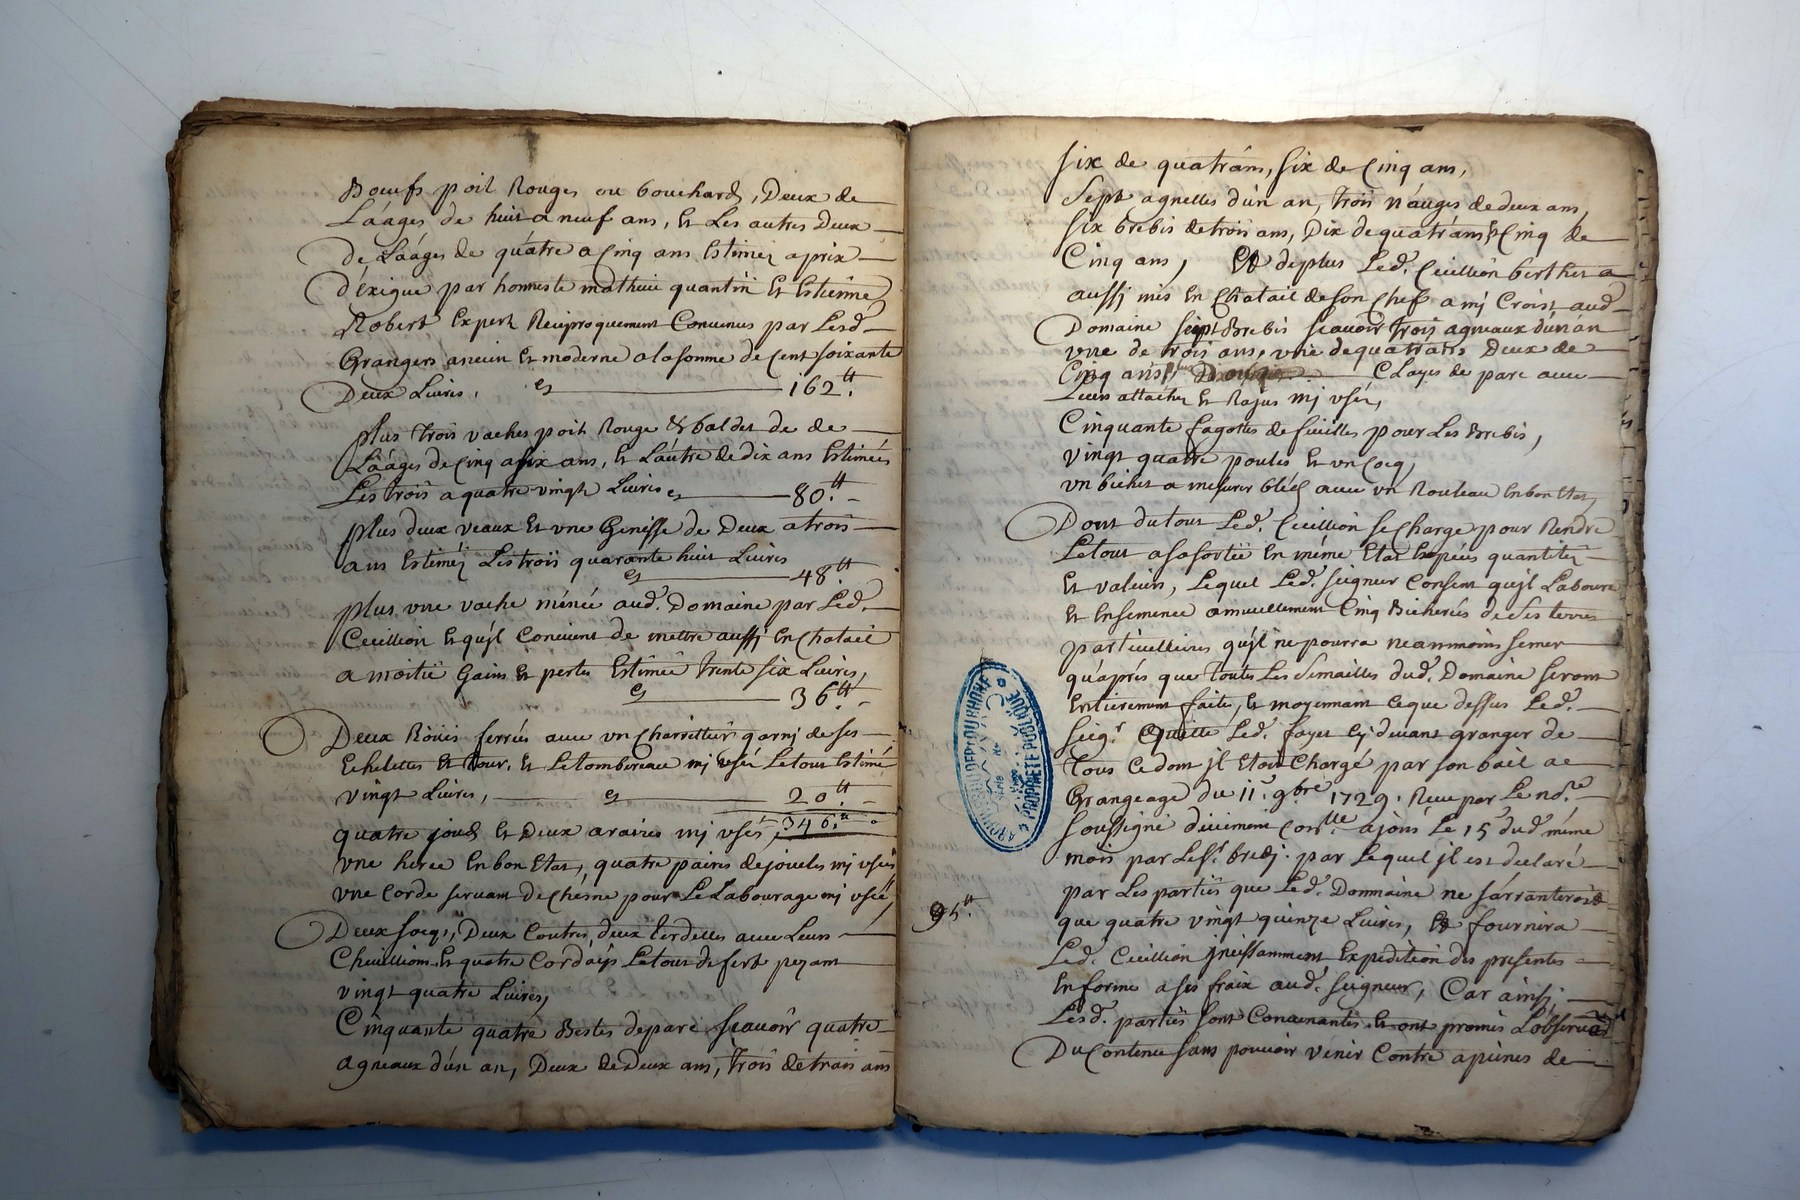 Bœufs poil Rouges ou bouchard, Deux de
Laâges de huit a neuf ans, Et Les autres Deux
de Laâges de quatre a Cinq ans Estimez a prix
d'éxigue par honneste mathieu quantin Et Estienne
Robert Expert Reciproquement Convenus par Lesd.
Grangers ancien Et moderne a la somme de Cent soixante
Deux Livres, Cy 162.tt
plus trois vaches poil Rouge Et baldet de de
Laâges de Cinq a six ans, Et L'autre de dix ans Estimées
Les trois a quatre vingt Livres Cy 80.tt
plus deux veaux Et une Genisse de Deux a trois
ans Estiméz Les trois quarante huit Livres
Cy 48.tt
plus une vache ménée aud. Domaine par Led.
Ceuillion Et qu'jl Convient de mettre aussj En Chatail
a moitié Gains Et pertes Estimée trente six Livres,
Cy 36.tt
Deux Roües ferrées avec un Charrettier garnj de ses
Echelettes Et tour, Et Le tombereau mj usé Le tout Estimé
vingt Livres, Cy 20.tt
quatre jougs Et Deux araires mj usés, 346.tt
une herce En bon Etat, quatre paires de joucles mj usées
une Corde servant de Chesne pour Le Labourage mj usée,
Deux socqs, Deux Coutres, deux avec Leurs
Chevillions Et quatre Le tout de fert pezant
vingt quatre Livres,
Cinquante quatre Bestes de parc scavoir quatre
agneaux d'un an, Deux de Deux ans, trois de trois ans
six de quatr'ans, six de Cinq ans,
Sept agnelles d'un an, trois de deux ans,
six brebis de trois ans, Dix de quatr'ans, Et Cinq de
Cinq ans, Et de plus Led. Ceuillion berthet a
aussj mis En Chatail de son Chef a mj Croist aud.
Domaine sept Brebis scavoir trois agneaux d'un an
une de trois ans, une de quatr'ans Deux de
Cinq ans, plus Clayes de parc avec
Leurs attaches Et mj usés,
Cinquante fagottes de feuilles pour Les Brebis,
vingt quatre poules Et un Cocq,
un bichet a mesurer bléd avec un Rouleau En bon Etat,
Dont du tout Led. Ceuillion se Charge pour Rendre
Le tout a sa sortie En même Etat Espéces quantitéz
Et valeurs, Lequel Led. seigneur Consent qu'jl Laboure
Et Ensemence annuellement Cinq Bicherées de ses terres
particullieres qu'jl ne pourra neanmoins semer
qu'après que toutes Les semailles dud. Domaine seront
Entierement faites, Et moyennant Ce que dessus Led.
seigr. Quitte Led. fayet Cj devant granger de
tous Ce dont jl Etoit Chargé par son bail a
Grangeage du 11.e 9bre 1729. Receu par Le no.re
soussigné duement Con.llé a jons Le 15 dud. même
mois par Le sr. bredj. par Lequel jl est declaré
par Les parties que Led. Dommaine ne s'arranteroit
95.tt
que quatre vingt quinze Livres, Et fournira
Led. Ceuillion jncessamment Expedition des presentes
En forme a ses fraix aud. seigneur, Car ainsj
Lesd. parties sont Convenantes Et ont promis L'observ.
Du Contenu sans pouvoir venir Contre a peines de
ARCHIVES DU DEPT DU RHONE
PROPRIETE PUBLIQUE